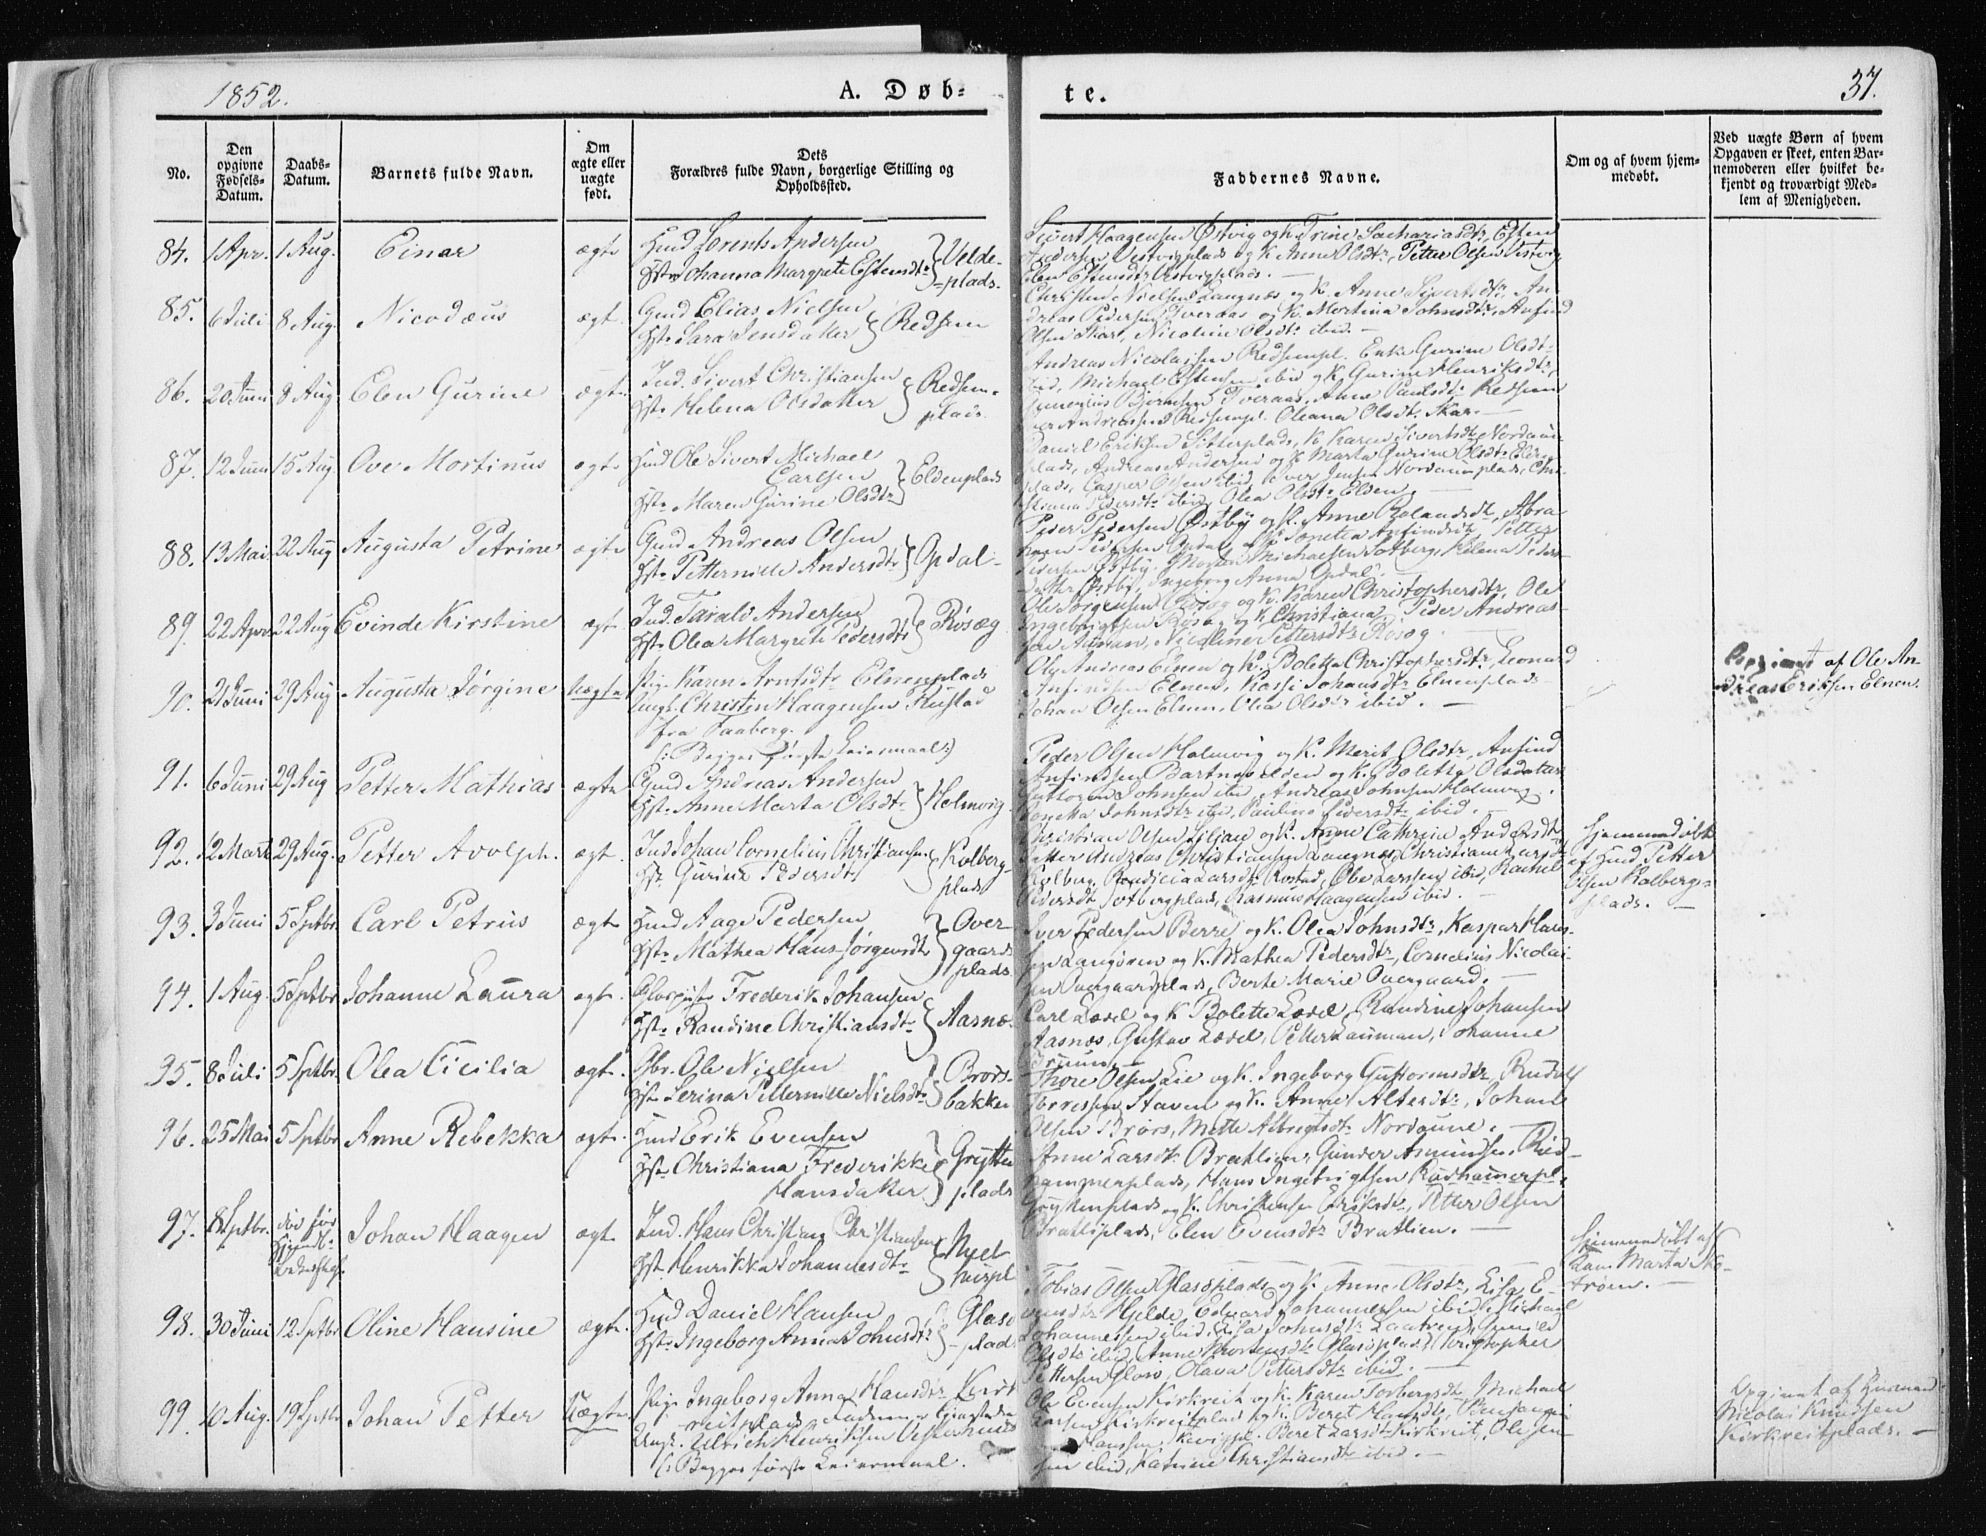 1852.
A. Døb-
te.
37.
No.
Den
opgivne
Fødsels-
Datum.
Daabs-
Datum.
Barnets fulde Navn.
Om
ægte eller
uægte
født.
Dets
Forældres fulde Navn, borgerlige Stilling og
Opholdssted.
Faddernes Navne.
Om og af hvem hjem-
medøbt.
Ved uægte Børn af hvem
Opgaven er skeet, enten Bar-
nemoderen eller hvilket be-
kjendt og troværdigt Med-
lem af Menigheden.
84. 1 Apr. 1 Aug. Einar ægte
Lorents Andersen
Johanna Margrete Estensdtr
Velde-
plads.
Sivert Haagensen Østvig og K. Trine Sachariasdtr, Esten
Andersen Vestvigplads og K. Anne Olsdtr, Petter Olsen Østvig
Elen Estensdtr Vestvigplads.
85. 6 Juli 8 Aug. Nicodæus ægt.
Gmd Elias Nielsen
Hst. Sara Jensdatter
Redsem
Christen Nielsen Langnæs og K. Anne Sivertsdtr, An-
dreas Pedersen Tveraas og K. Martina Johnsdtr, Anfind
Olsen Skar, Nicoline Olsdtr ibid.
86. 20 Juni 8 Aug Elen Gurine ægte
Ind. Sivert Christiansen
Hst. Helena Olsdatter
Redsem-
plads
Andreas Nicolaisen Redsempl. Enke Gurine Olsdtr
ibid, Michael Estensen ibid og K. Gurine Henriksdtr,
Tveraas, Anne Paulsdtr Redsem
Andreassen Redsempl. Oleana Olsdtr Skar.
87. 12 Juni 15 Aug. Ove Martinus ægte
Hmd Ole Sivert Michael
Carlsen
Hst. Maren Gurine Olsdtr
Eldenplads
Daniel Eriksen Sitterplads, K. Karen Sivertsdtr Nordaun-
plads, Andreas Andersen og K. Marta Gurine Olsdtr Elden-
plads, Casper Olsen ibid, Iver Jensen Nordaunplads, Chri-
stianna Pedersdtr ibid, Olea Olsdtr Elden.
88. 13 Mai 22 Aug Augusta Petrine ægte
Gmd Andreas Olsen
Hst. Petternille Andersdtr
Opdal
Peder Pedersen Østby og K. Anne Rolandsdtr, Abra-
ham Pedersen Opdal og K. Jonetta Anfindsdtr, Petter
Pedersen Østby, Morten Michaelsen Solberg, Helena Peders-
datter Østby, Ingeborg Anna Opdal.
89. 22 Apr. 22 Aug Evinde Kirstine ægt.
Ind. Tarald Andersen
Hst. Olea Margrete Pedersdtr
Rosæg
Ole Jørgensen Rosæg og K. Karen Christophersdtr, Ole
Ingebrigtsen Rosæg og K. Christiana, Peder Andreas-
sen Aunan, Nicoline Pettersdtr Rosæg.
90. 21 Juni 29 Aug Augusta Jørgine Uægte
Pige Karen Arntsdtr Elnenplads
Ungk. Christen Haagensen Rustad
fra Faaberg.
(: Begges første Leiermaal :)
Ole Andreas Elnen og K. Boletta Christophersdtr, Leonard
Anfindsen Elnen, Kassi Johansdtr Elnenplads
Johan Olsen Elnen, Olea Olsdtr ibid.
Opgivet af Ole An-
dreas Eriksen Elnen.
91. 6 Juni 29 Aug Petter Mathias ægte
Gmd Andreas Andersen
Hst. Anne Marta Olsdtr
Holmvig
Peder Olsen Holmvig og K. Merit Olsdtr, Anfind
Anfindsen Bartnæselden og K. Boletta Olsdatter
Guttorm Johnsen ibid, Andreas Johnsen Holmvig,
Jonetta Johnsdtr ibid, Pauline Pedersdtr ibid.
92. 12 Marts 29 Aug. Petter Avolph. ægt.
Ind Johan Cornelius Christiansen
Hst. Gurine Pedersdtr
Kolberg-
plads
Christian Olsen Liljan og K. Anne Cathrine Andersdtr
Petter Andreas Christiansen Langnæs, Christiana Larsdtr
Kolberg, Larsdtr Rostad, Ole Larssen ibid, Rachel
Pedersdtr Solbergplads, Rasmus Haagensen ibid.
Hjemmedøbt
af Hmd Petter
Olsen Kolbergs-
plads.
93. 3 Juni 5 Septbr. Carl Petrus ægte
Hmd Aage Pedersen
Hst. Mathea Hans Jørgensdtr
Over-
gaards
plads
Iver Pedersen Berre og K. Olea Johnsdtr, Kaspar Hans-
sen Langøren og K. Mathea Pedersdtr, Cornelius Nicolai-
sen Overgaardsplads, Berte Marie Overgaard.
94. 1 Aug. 5 Septbr Johanne Laura ægte.
Frederik Johansen
Hst. Randine Christiansdtr
Aasnæ.
Carl Lævel og K. Bolette Lævel, Randine Johansen
Aasnæs, Gustav Lævel, Petter Lauman, Johanne
Bruun
95. 8 Juli 5 Septbr. Olea Cicilia ægte.
Gbr. Ole Nielsen
Hst. Serina Petternille Nielsdtr
Brørs-
bakken
Thore Olsen Lie og K. Ingeborg Guttormsdtr, Rudolf
Thoressen Staven og K. Anne Altersdtr, Johan
Olsen Brørs, Mette Albregtsdtr Nordaune.
96. 25 Mai 5 Septbr Anne Rebekka ægte.
Hmd Erik Evensen
Hst. Christiana Frederikke
Hansdatter
Grytten
plads
Anne Larsdtr Bratlien, Gunder Asmundsen Rød-
hammerplads, Hans Ingebrigtsen Rødhamerpl.
Gryttenplads og K. Christense Eriksdtr, Petter Olsen
Bratliplads, Elen Evensdtr Bratlien.
97. 8 Septbr. død før
Johan Haagen ægte
Ind. Hans Christian Christiansen
Hst. Henrikka Johannesdtr
Hjemmedøbt af
Kane Marta
98. 30 Juni 12 Septbr Oline Hansine ægte.
Hmd Daniel Hansen
Hst. Ingeborg Anna Johnsdtr
Glasø
plads
Tobias Olsen Glasøplads og K. Anne Olsdtr, Lisa E-
vensdtr Hjelde, Eduard Johannessen ibid, Michael
Johannessen ibid, Elisa Johnsdtr Laatven, Gunild
Olsdtr ibid, Anne Mortensdtr Glasøplads, Christopher
Pettersen Glasø, Olava Pettersdtr ibid.
99. 10 Aug. 19 Septbr Johan Petter Uægte
Pige Ingeborg Anna Hansdtr Kirk-
reitplads
Ungk. Ulrich Henriksen Oksenhaug
(: Begges første Leiermaal.
Ole Evensen Kirkreit og K. Karen Torbergsdtr, Michael
Larsen Kirkreitplads og K. Beret Hansdtr, Benjamin
Hanssen, Beret Larsdtr Kirkreit, Ole Jen-
sen ibid, Katrine Christiansdtr ibid.
Opgivet af Husmand
Nicolai Knudsen
Kirkreitplads.